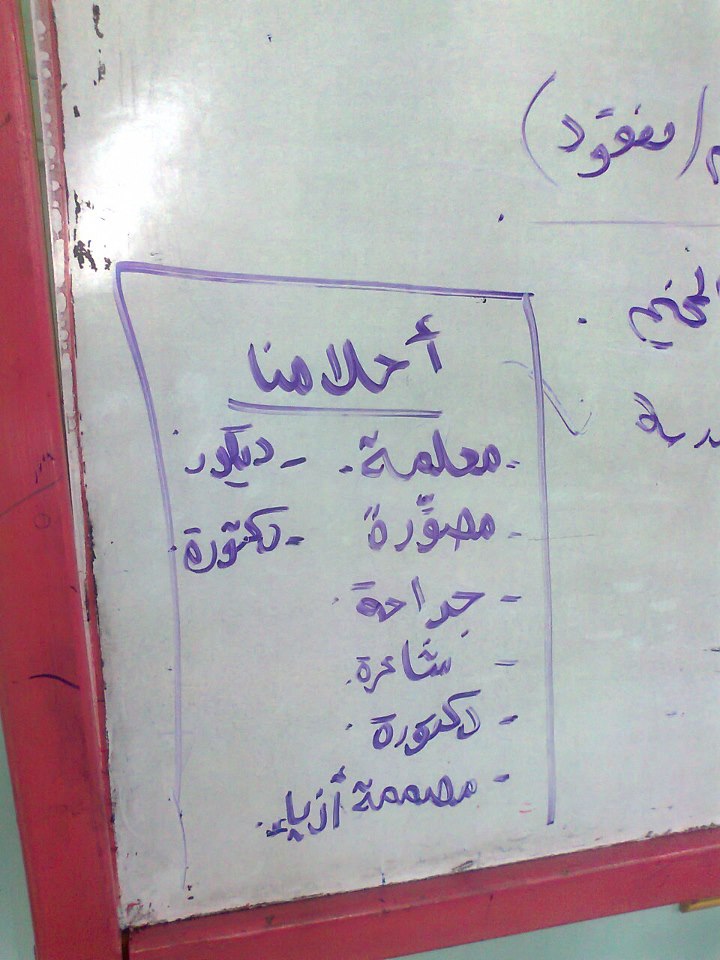 (مفقود)
أحلامنا
- معلمة. - ديكور.
- مصوِّرة - دكتورة.
- جراحة.
- شاعرة.
- دكتورة.
- مصممة أزياء.